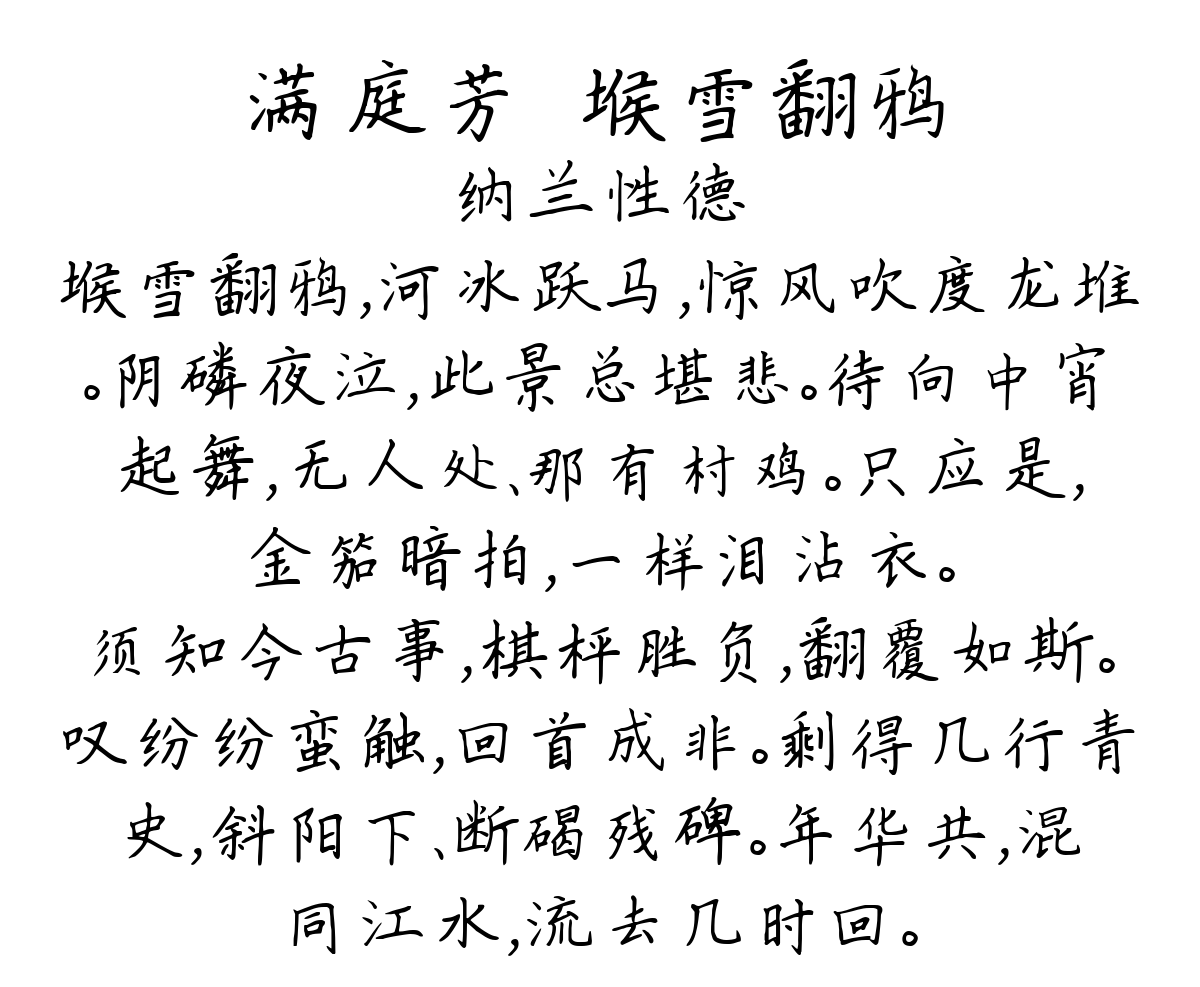 满庭芳 堠雪翻鸦
纳兰性德
堠雪翻鸦,河冰跃马,惊风吹度龙堆
。阴磷夜泣,此景总堪悲。待向中宵
起舞,无人处、那有村鸡。只应是,
金笳暗拍,一样泪沾衣。
须知今古事,棋枰胜负,翻覆如斯。
叹纷纷蛮触,回首成非。剩得几行青
史,斜阳下、断碣残碑。年华共,混
同江水,流去几时回。